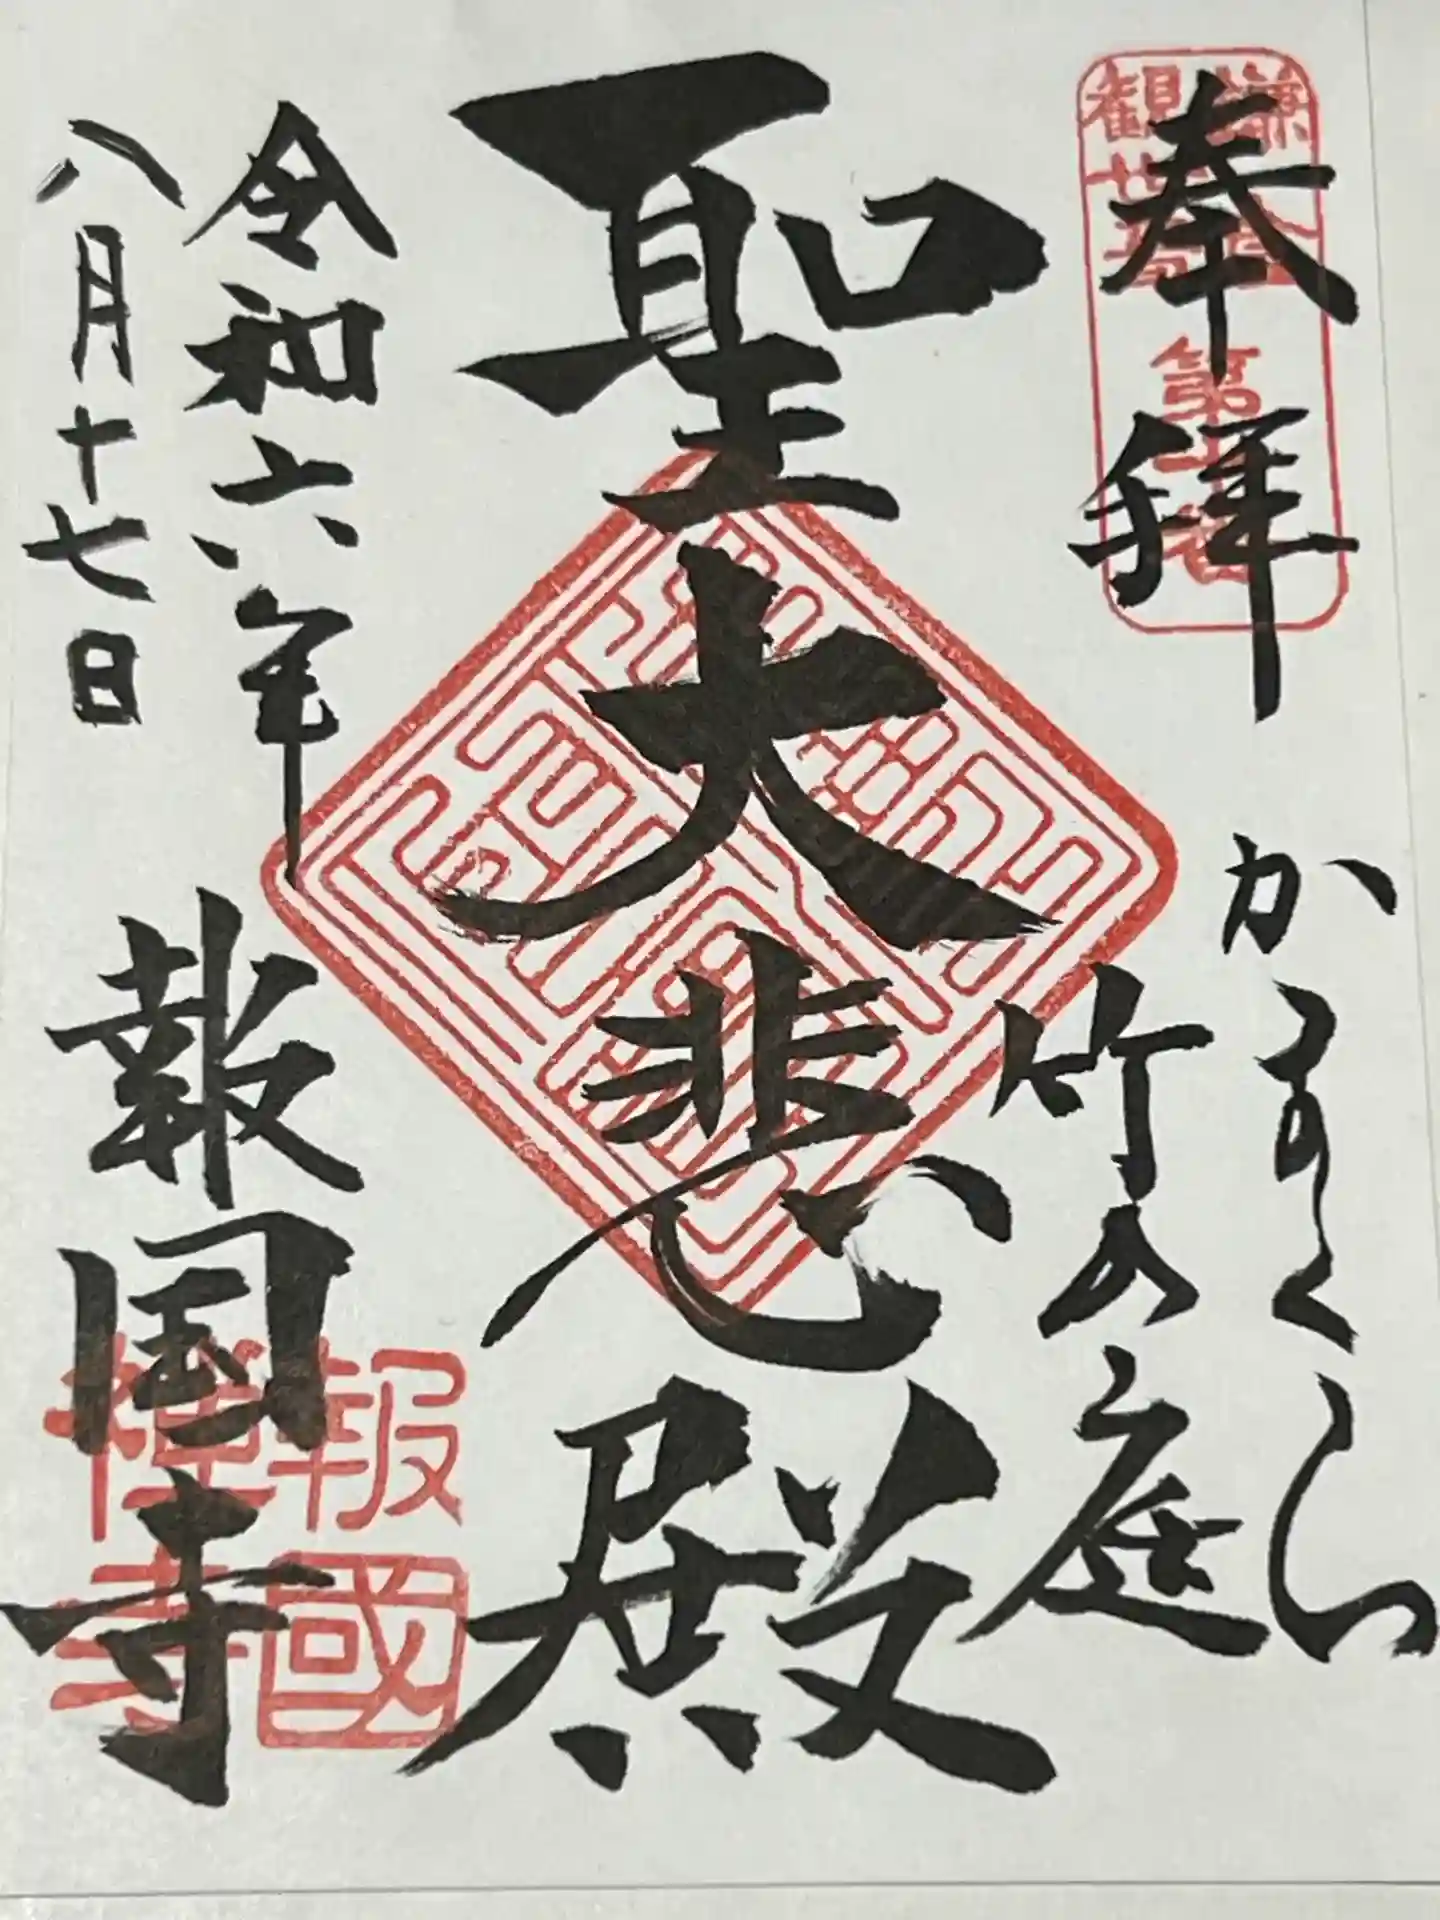 奉拝
鎌倉
観世音
第十番
かまくら
竹の庭
聖大悲殿
令和六年
八月十七日
報国寺
報國
禅寺